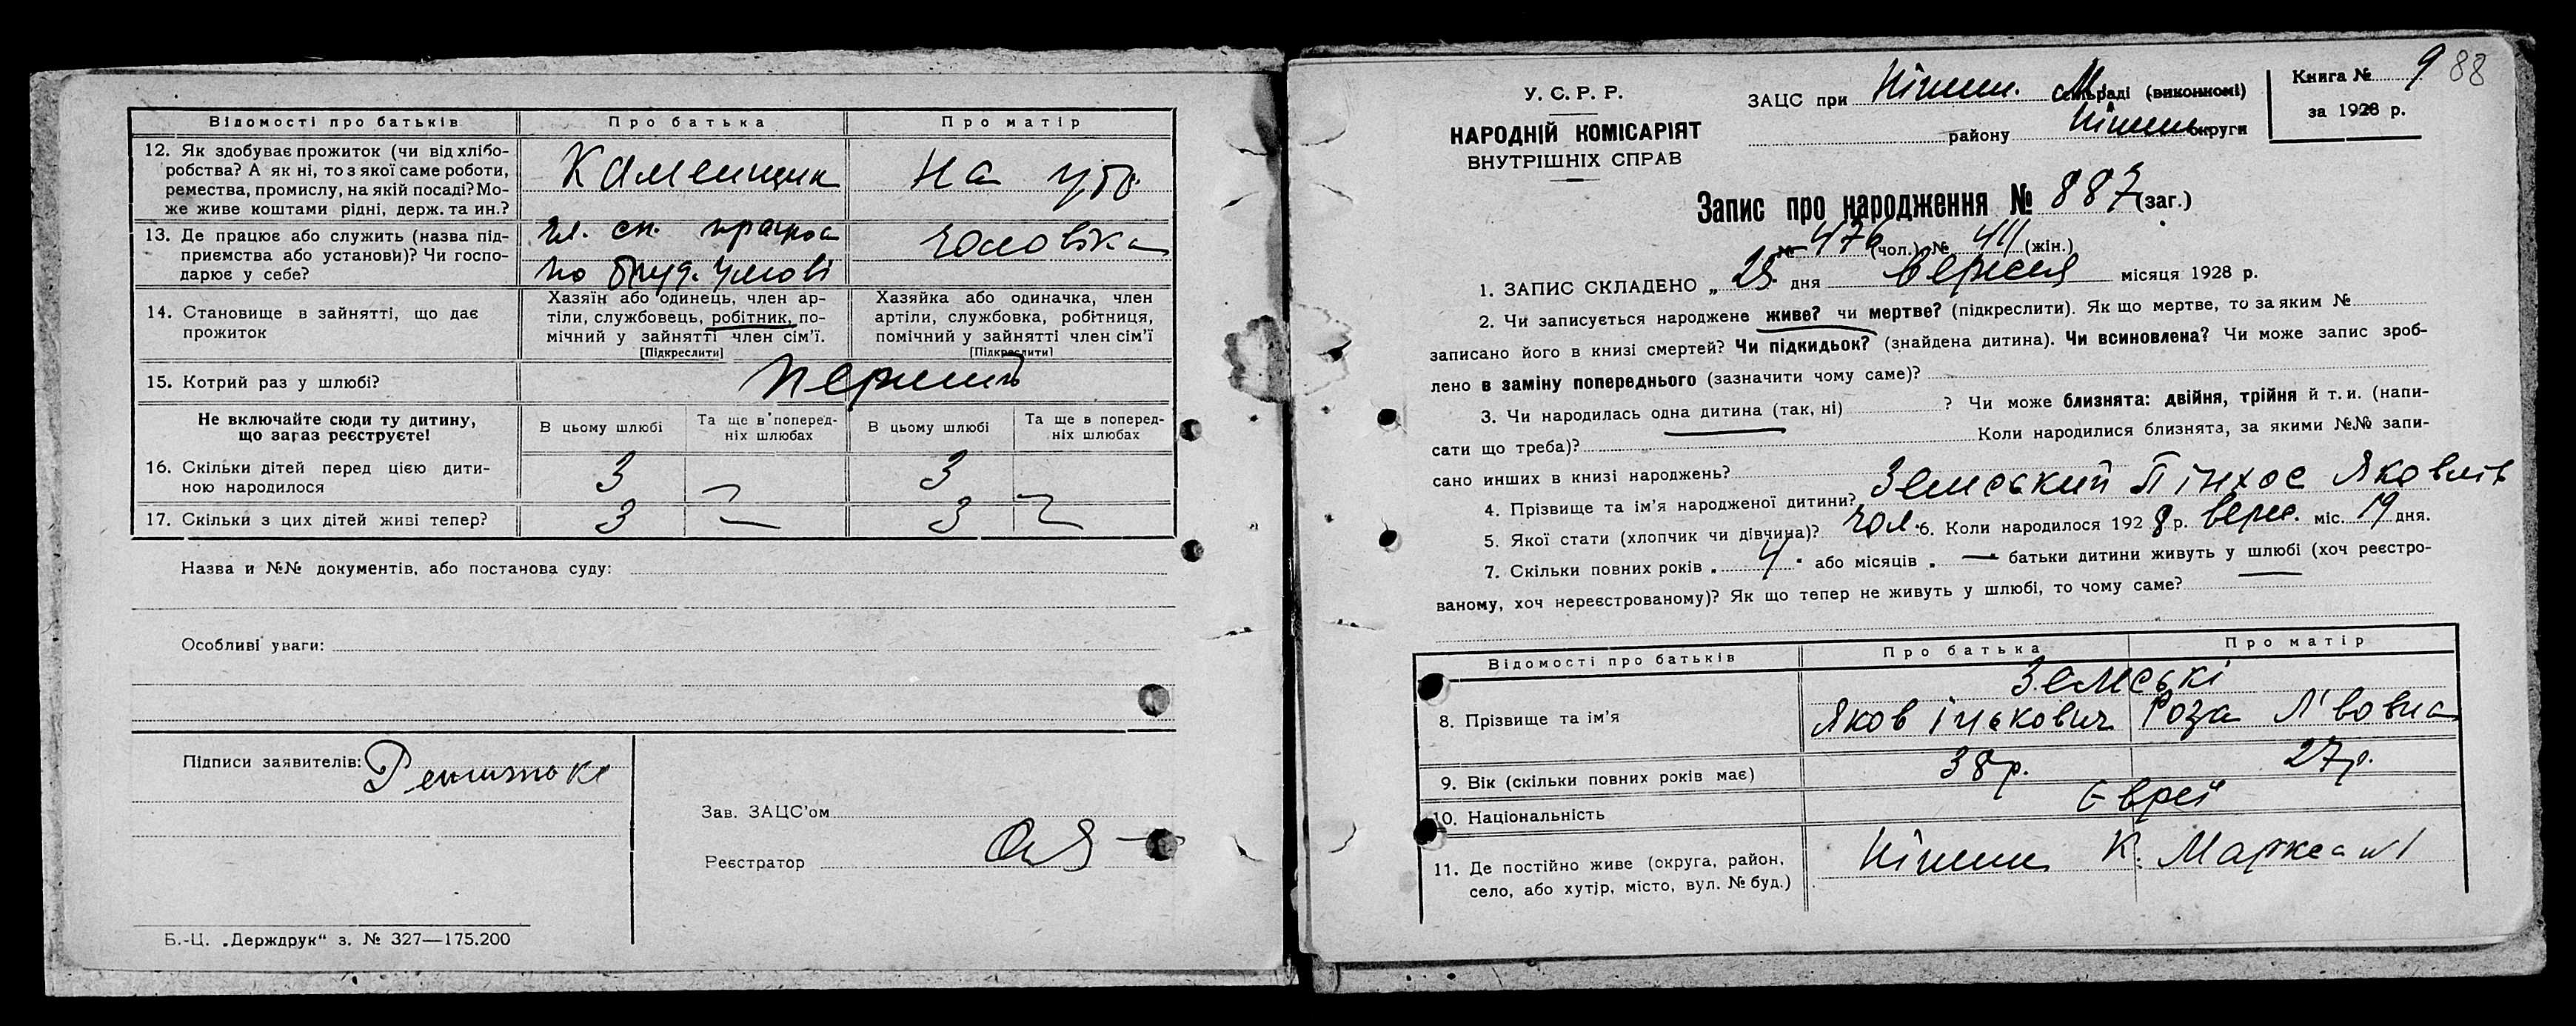 Відомості про батьків
Про батька
Про матір
12. Як здобуває прожиток (чи від хлібо-
робства? А як ні, то з якої саме роботи,
ремества, промислу, на якій посаді? Мо-
же живе коштами рідні, держ. та ин.?
Каменщик
На утр.
13. Де працює або служить (назва під-
приємства або установи)? Чи госпо-
дарює у себе?
чл. сп.
по труд. умові
чоловіка
14. Становище в зайнятті, що дає
прожиток
Хазяїн або одинець, член ар-
тіли, службовець, робітник, по-
мічний у зайнятті член сім'ї.
[Підкреслити]
Хазяйка або одиначка, член
артіли, службовка, робітниця,
помічний у зайнятті член сім'ї
[Підкреслити]
15. Котрий раз у шлюбі?
перший
Не включайте сюди ту дитину,
що загаз реєструєте!
В цьому шлюбі
Та ще в поперед-
ніх шлюбах
В цьому шлюбі
Та ще в поперед-
ніх шлюбах
16. Скільки дітей перед цією дити-
ною народилося
3
3
17. Скільки з цих дітей живі тепер?
3 —
3 —
Назва и №№ документів, або постанова суду:
Особливі уваги:
Підписи заявителів:
Зав. ЗАЦС'ом
Реєстратор
Б.-Ц. „Держдрук“ з. № 327—175.200
У. С. Р. Р.
НАРОДНІЙ КОМІСАРІЯТ
ВНУТРІШНІХ СПРАВ
ЗАЦС при Ніжин. М. раді (виконкомі)
району Ніжин округи
Книга № 9
88
за 1928 р.
Запис про народження № 887 (заг.)
№ 476 (чол.) № 411 (жін.)
1. ЗАПИС СКЛАДЕНО „ 25 дня Вересня місяця 1928 р.
2. Чи записується народжене живе? чи мертве? (підкреслити). Як що мертве, то за яким №
записано його в книзі смертей? Чи підкидьок? (знайдена дитина). Чи всиновлена? Чи може запис зроб-
лено в заміну попереднього (зазначити чому саме)?
3. Чи народилась одна дитина (так, ні) ? Чи може близнята: двійня, трійня й т. и. (напи-
сати що треба)? Коли народилися близнята, за якими №№ запи-
сано инших в книзі народжень?
4. Прізвище та ім'я народженої дитини? Земський Пінхос Яковлів
5. Якої стати (хлопчик чи дівчина)? чол. 6. Коли народилося 1928 р. верес. міс. 19 дня.
7. Скільки повних років „ 4 “ або місяців „ — “ батьки дитини живуть у шлюбі (хоч реєстро-
ваному, хоч нереєстрованому)? Як що тепер не живуть у шлюбі, то чому саме?
Відомості про батьків
Про батька
Про матір
8. Прізвище та ім'я
Земські
Яков Іцькович
Роза Л'вовна
9. Вік (скільки повних років має)
38 р.
27 р.
10. Національність
Євреї
11. Де постійно живе (округа, район,
село, або хутір, місто, вул. № буд.)
Ніжин К. Маркса № 1